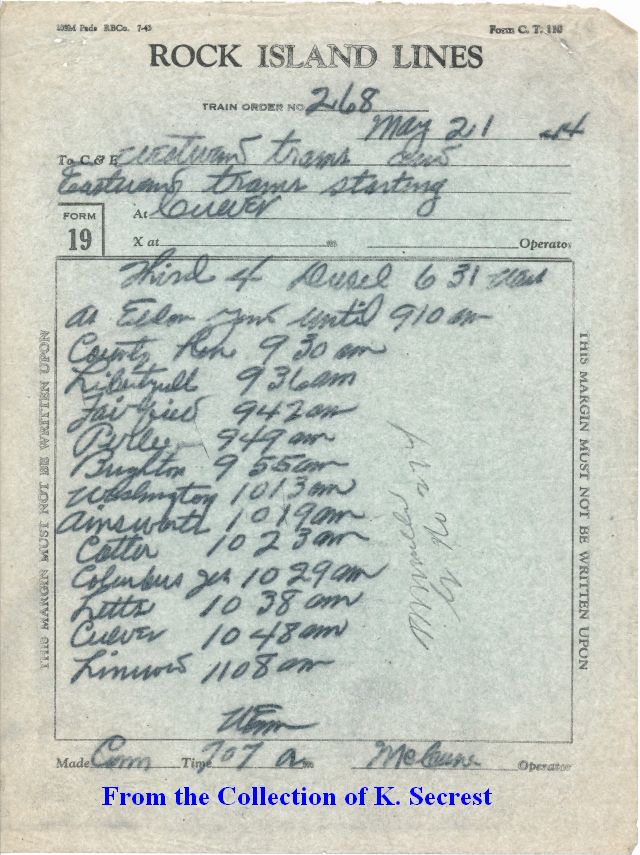 109M Pads RBCo. 7-43 Form C. T. 110
ROCK ISLAND LINES
TRAIN ORDER NO. 268
May 21 44
To C. & E. Westward trains and
Eastward trains starting
At Culver
FORM 19
X at m Operator
Third 4 Diesel 631 wait
at Eldon yard until 910 am
County Line 930 am
Libertyvill 936 am
Fairfield 942 am
Perlee 949 am
Brighton 955 am
Washington 1013 am
Ainsworth 1019 am
Cotter 1023 am
Columbus Jct 1029 am
Letts 1038 am
Culver 1048 am
Linwood 1108 am
THIS MARGIN MUST NOT BE WRITTEN UPON
THIS MARGIN MUST NOT BE WRITTEN UPON
Made Com Time 707 a m Operator
From the Collection of K. Secrest